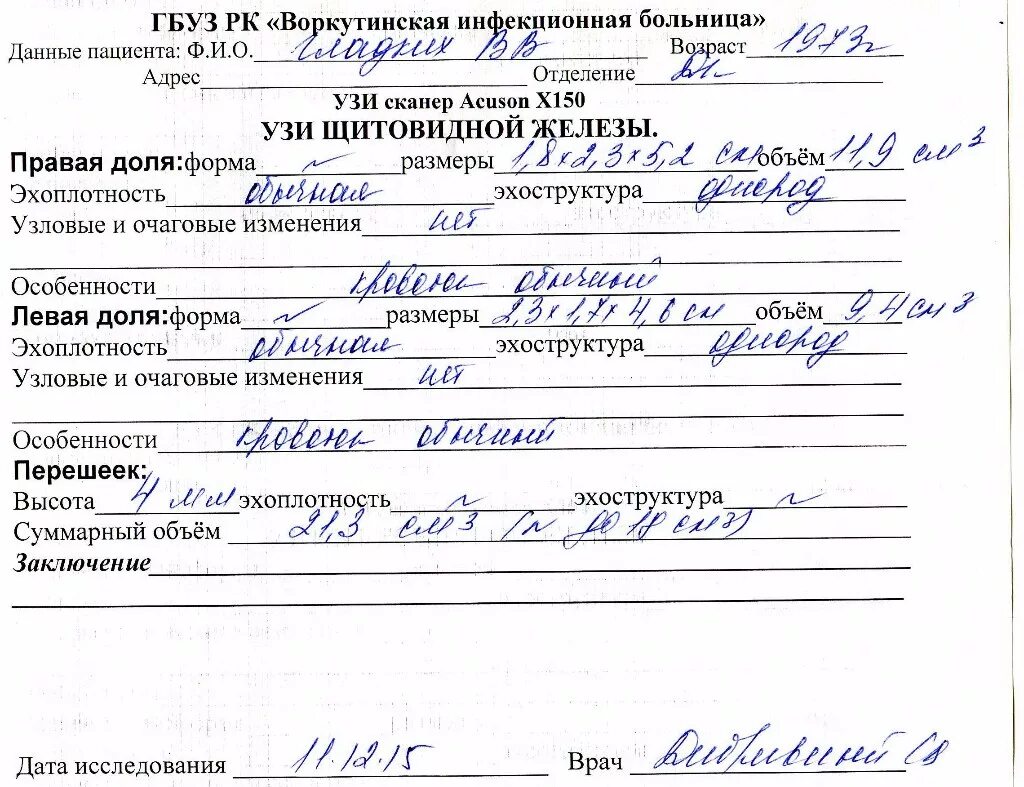 ГБУЗ РК «Воркутинская инфекционная больница»
Данные пациента: Ф.И.О. Гладких ВВ Возраст 1973г
Адрес Отделение
УЗИ сканер Acuson X150
УЗИ ЩИТОВИДНОЙ ЖЕЛЕЗЫ.
Правая доля:форма ~ размеры 1,8×2,3×5,2 см объём 11,9 см3
Эхоплотность обычная эхоструктура однород
Узловые и очаговые изменения нет
Особенности кровоток обычный
Левая доля:форма ~ размеры 2,3×1,7×4,6 см объём 9,4 см3
Эхоплотность обычная эхоструктура однород
Узловые и очаговые изменения нет
Особенности кровоток обычный
Перешеек:
Высота 4 мм эхоплотность ~ эхоструктура ~
Суммарный объём 21,3 см3 (N до 18 см3)
Заключение
Дата исследования 11.12.15 Врач